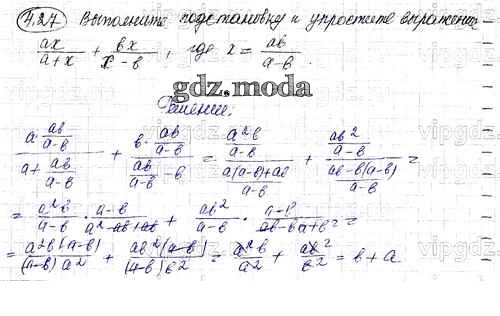 4.27 Выполните подстановку и упростите выражение
ax/(a+x) + bx/(x-b), где x = ab/(a-b).
gdz.moda
Решение:
(a·ab/(a-b))/(a+ab/(a-b)) + (b·ab/(a-b))/(ab/(a-b)-b) = (a²b/(a-b))/((a(a-b)+ab)/(a-b)) + (ab²/(a-b))/((ab-b(a-b))/(a-b)) =
= a²b/(a-b) · (a-b)/(a²-ab+ab) + ab²/(a-b) · (a-b)/(ab-ba+b²) =
= a²b(a-b)/((a-b)a²) + ab²(a-b)/((a-b)b²) = a²b/a² + ab²/b² = b+a